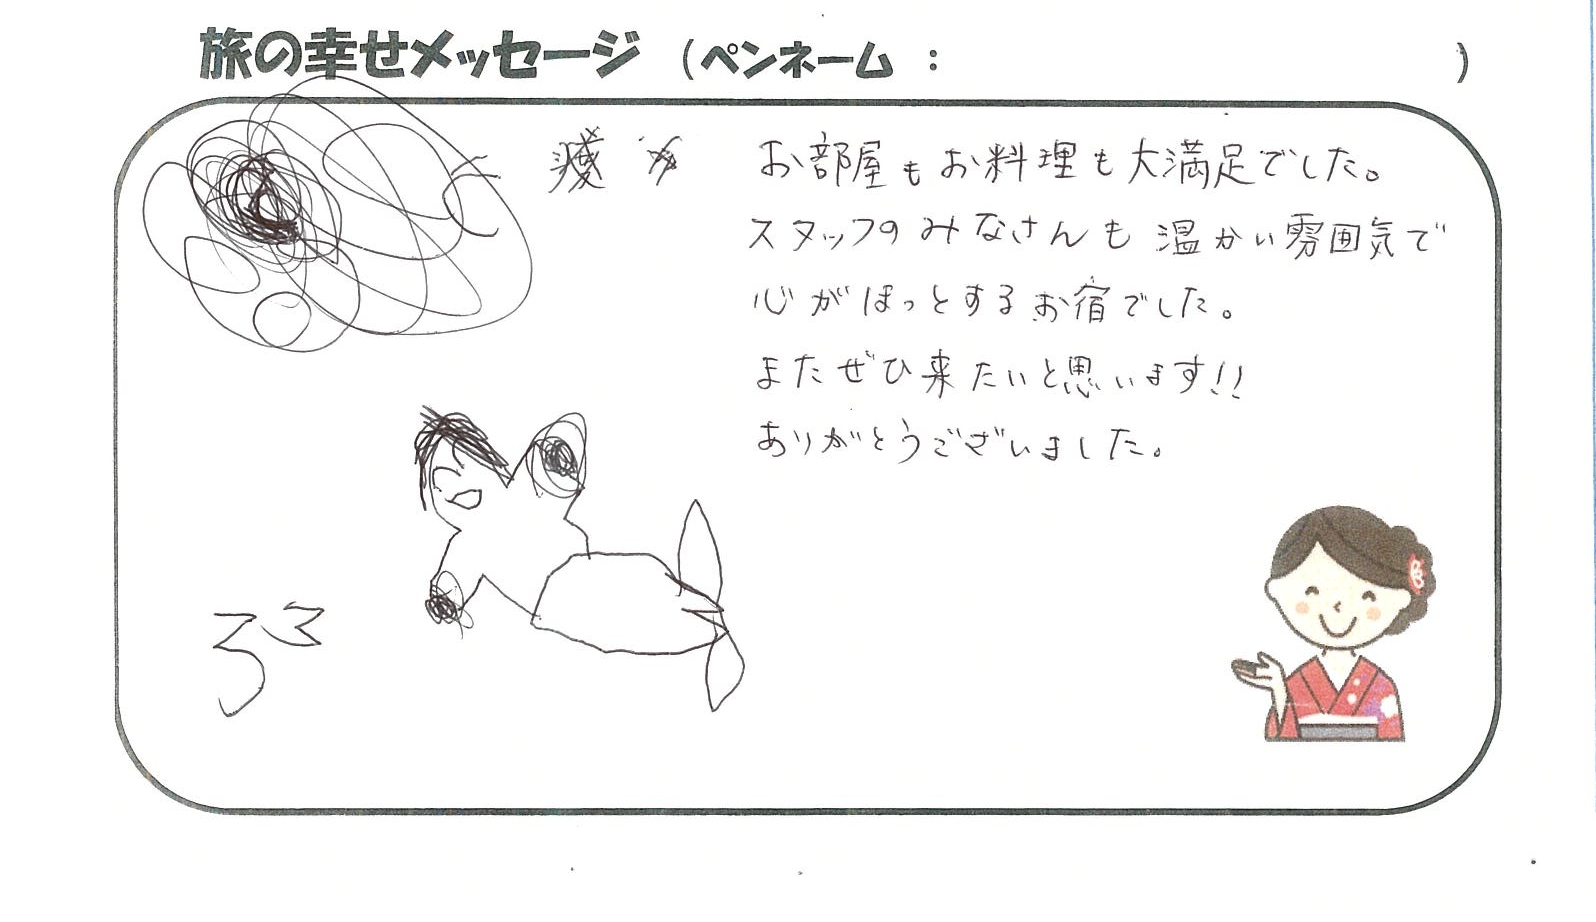 旅の幸せメッセージ (ペンネーム : )
お部屋もお料理も大満足でした。
スタッフのみなさんも温かい雰囲気で
心がほっとするお宿でした。
またぜひ来たいと思います!!
ありがとうございました。